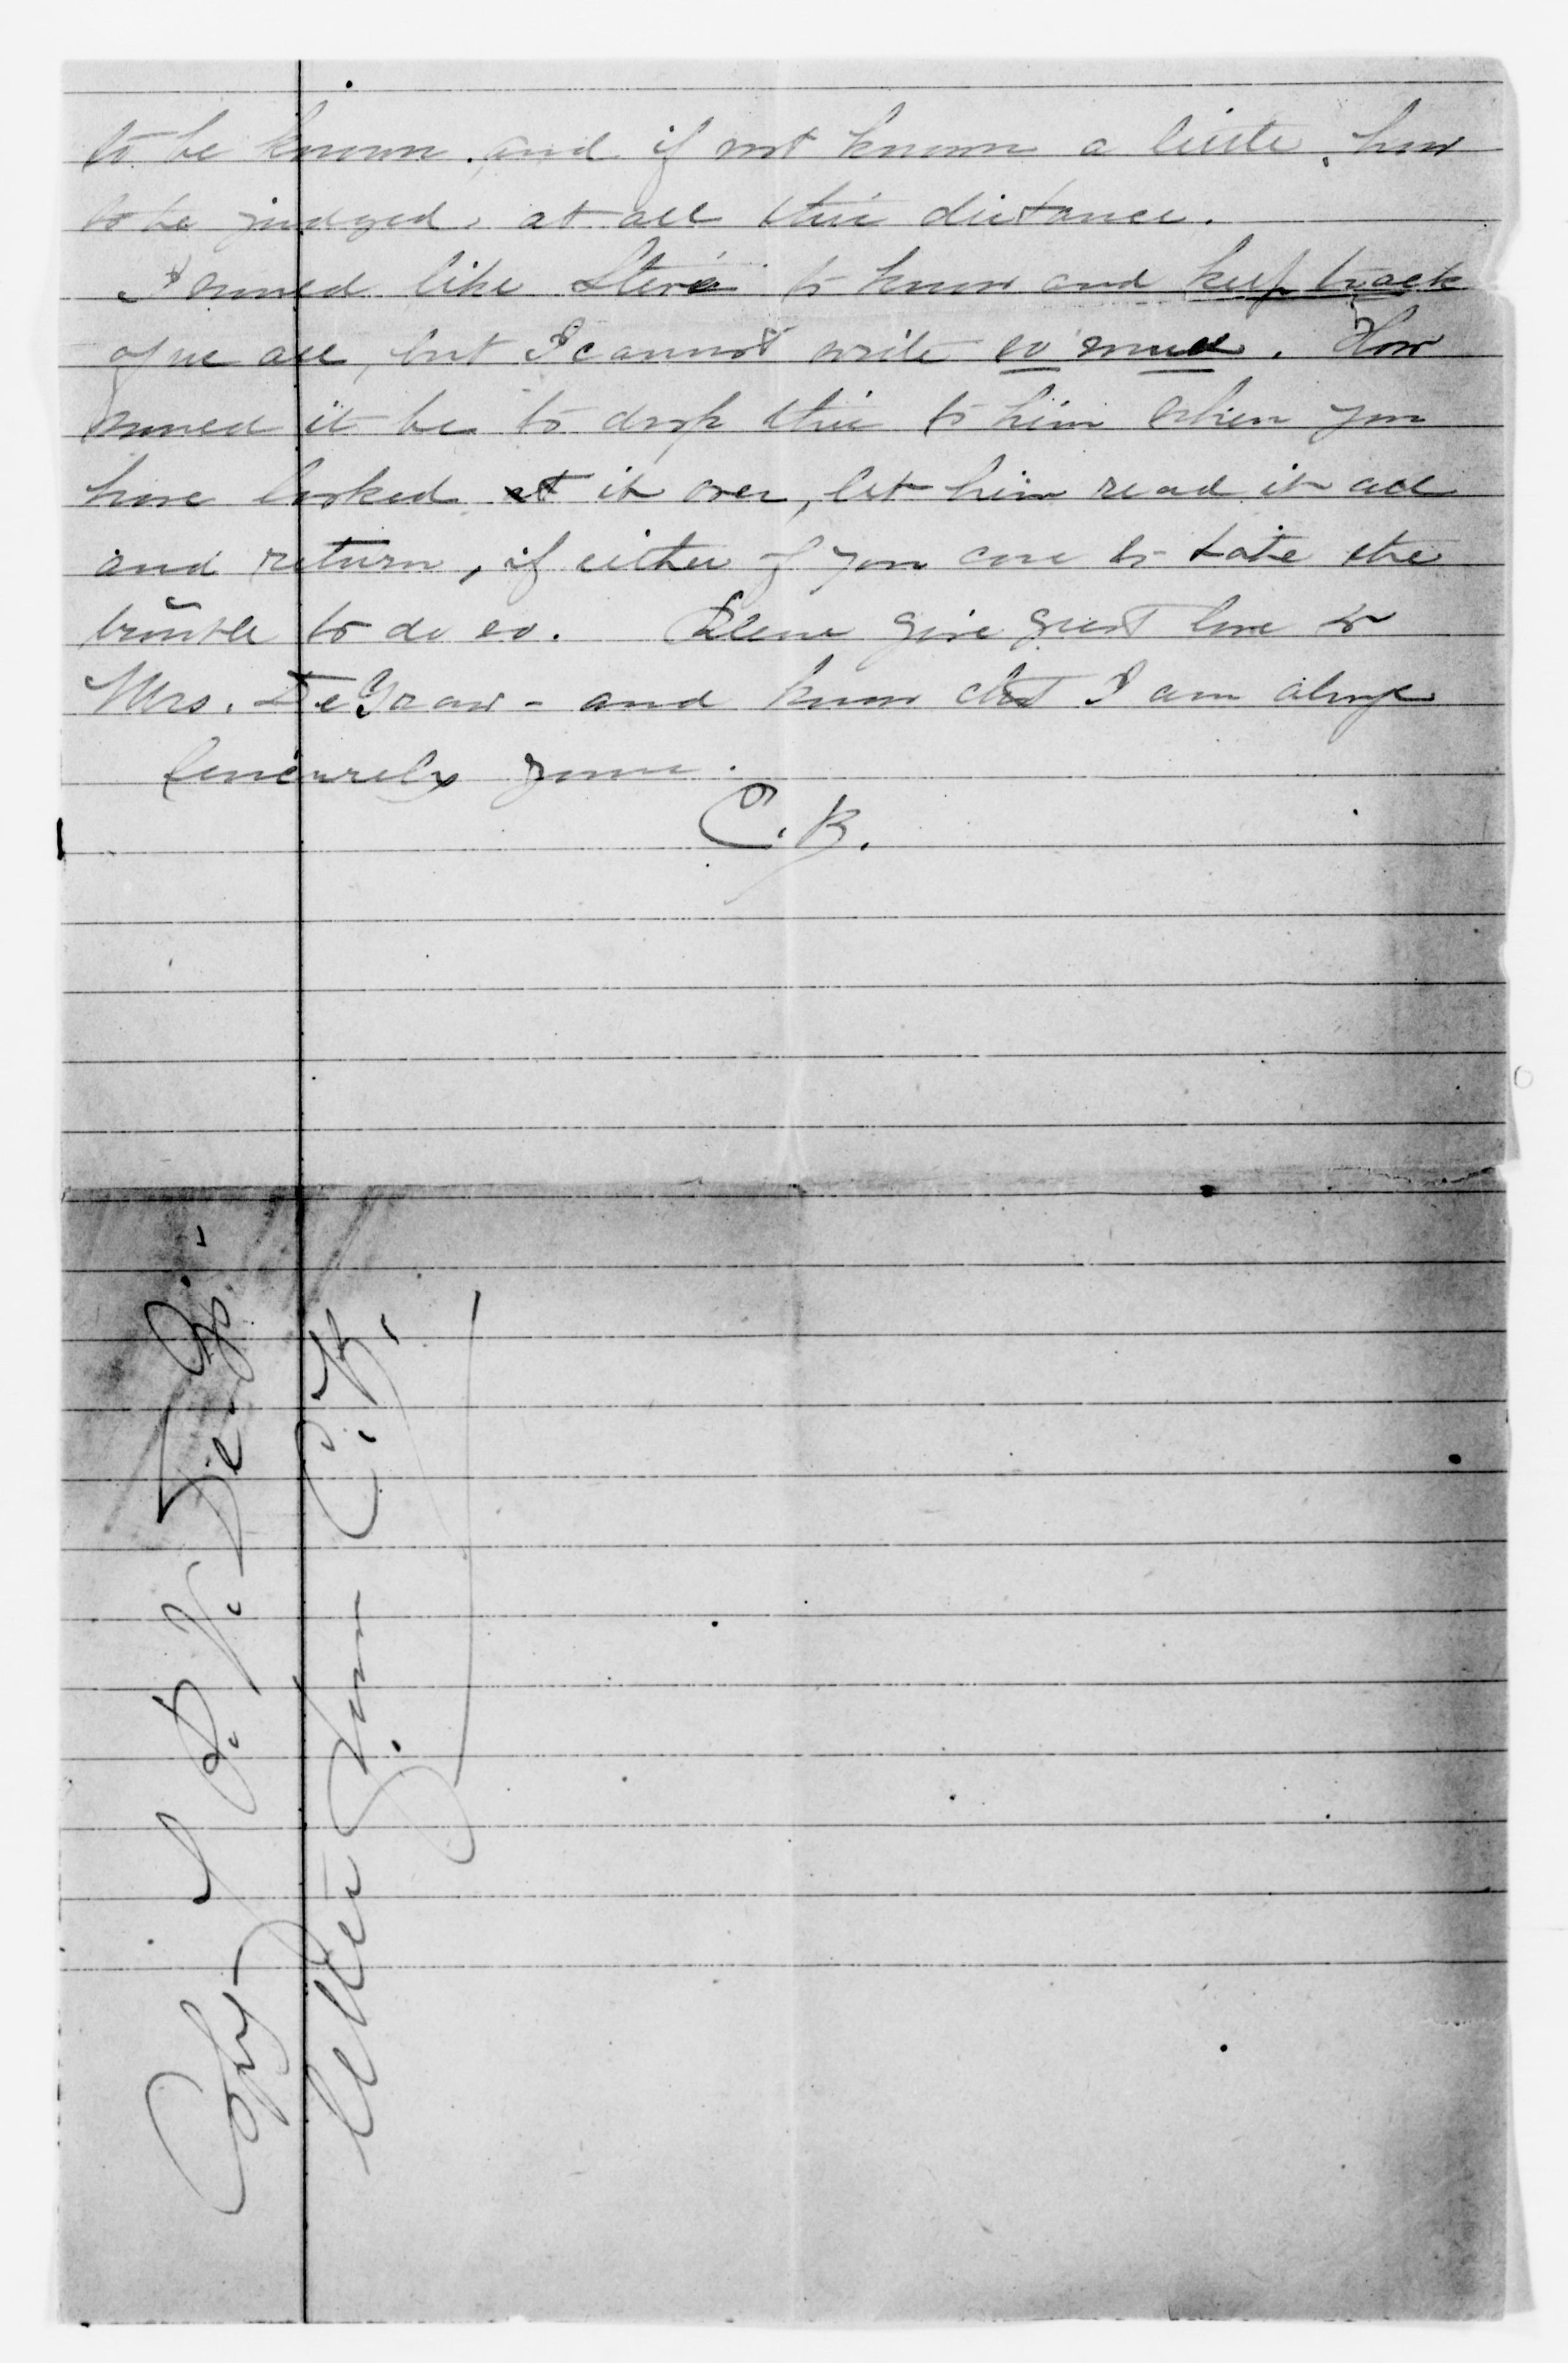 to be known, and if not known a little, how
to be judged, at all this distance.
I would like Steve to know and keep track
of us all, but I cannot write so much. How
would it be to drop this to him when you
have looked at it over, let him read it all
and return, if either of you care to take the
trouble to do so. Please give great love to
Mrs. DeGraw - and know that I am always
sincerely yours.
C. B.
Copy P. V. De G. -
letter from C. B.